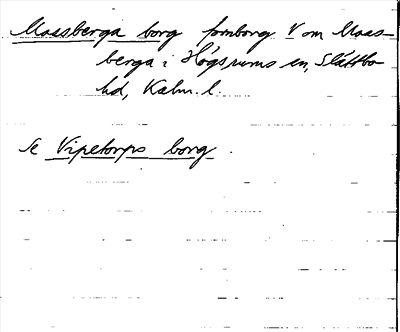 Mossberga borg fornborg V om Moss-
berga i Högsrums sn, Slättbo
hd, Kalm. l.
Se Vipetorps borg.